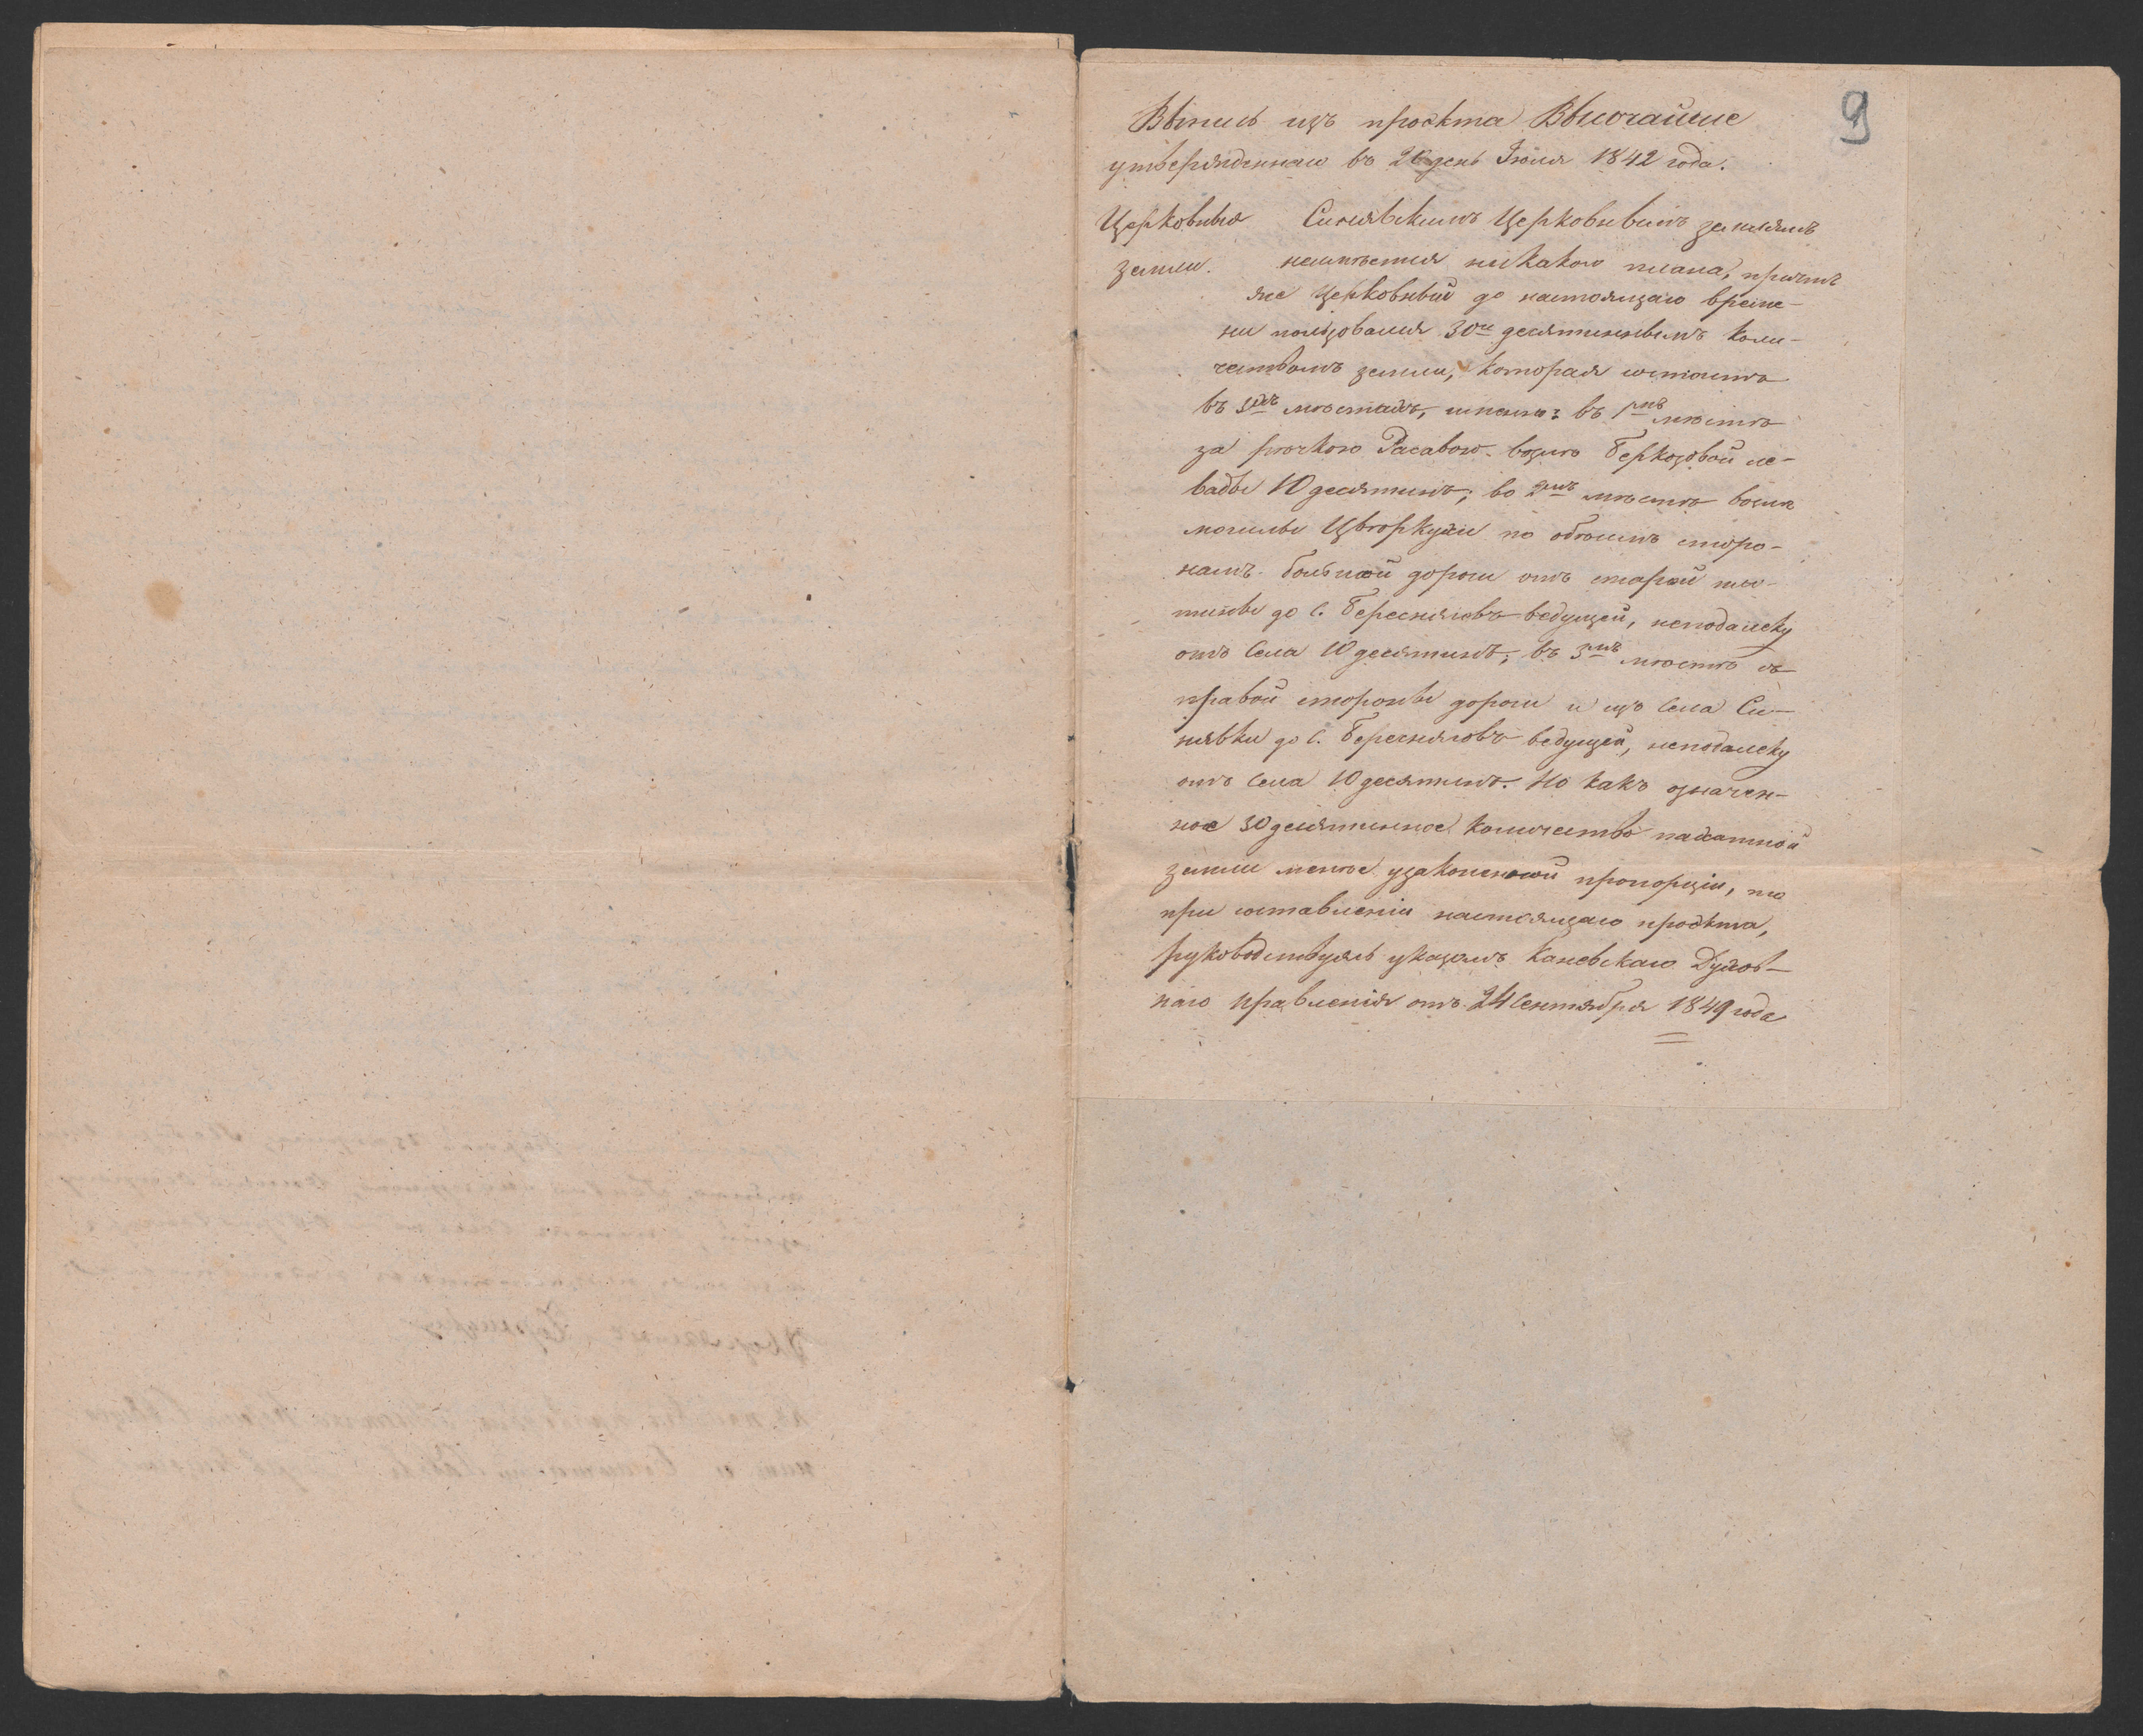 9
Выпись изъ проэкта Высочайше
утвержденнаго въ 20 день Іюля 1842 года.
Церковныя
земли.
Синявскимъ Церковнымъ землямъ
неимѣется никакого плана, причтъ
же Церковный до настоящаго време-
ни пользовался 30ти десятиннымъ коли-
чествомъ земли, которая состоитъ
въ 3хъ мѣстахъ, имянно: въ 1мъ мѣстѣ
за рѣчкою Расавою возлѣ Беркозовой ле-
вады 10 десятинъ; во 2мъ мѣстѣ возлѣ
могилы по обоимъ сторо-
намъ большой дороги отъ старой пло-
тины до С. Береснягов ведущей, неподалеку
отъ Села 10 десятинъ; въ 3мъ мѣстѣ съ
правой стороны дороги и изъ Села Си-
нявки до С. Береснягов ведущей, неподалеку
отъ Села 10 десятинъ. Но какъ означен-
ное 30 десятинное количество пахатной
земли менѣе узаконенной пропорціи, то
при составленіи настоящаго проэкта,
руководствуясь указомъ Каневскаго Духов-
наго Правленія отъ 24 Сентября 1849 года